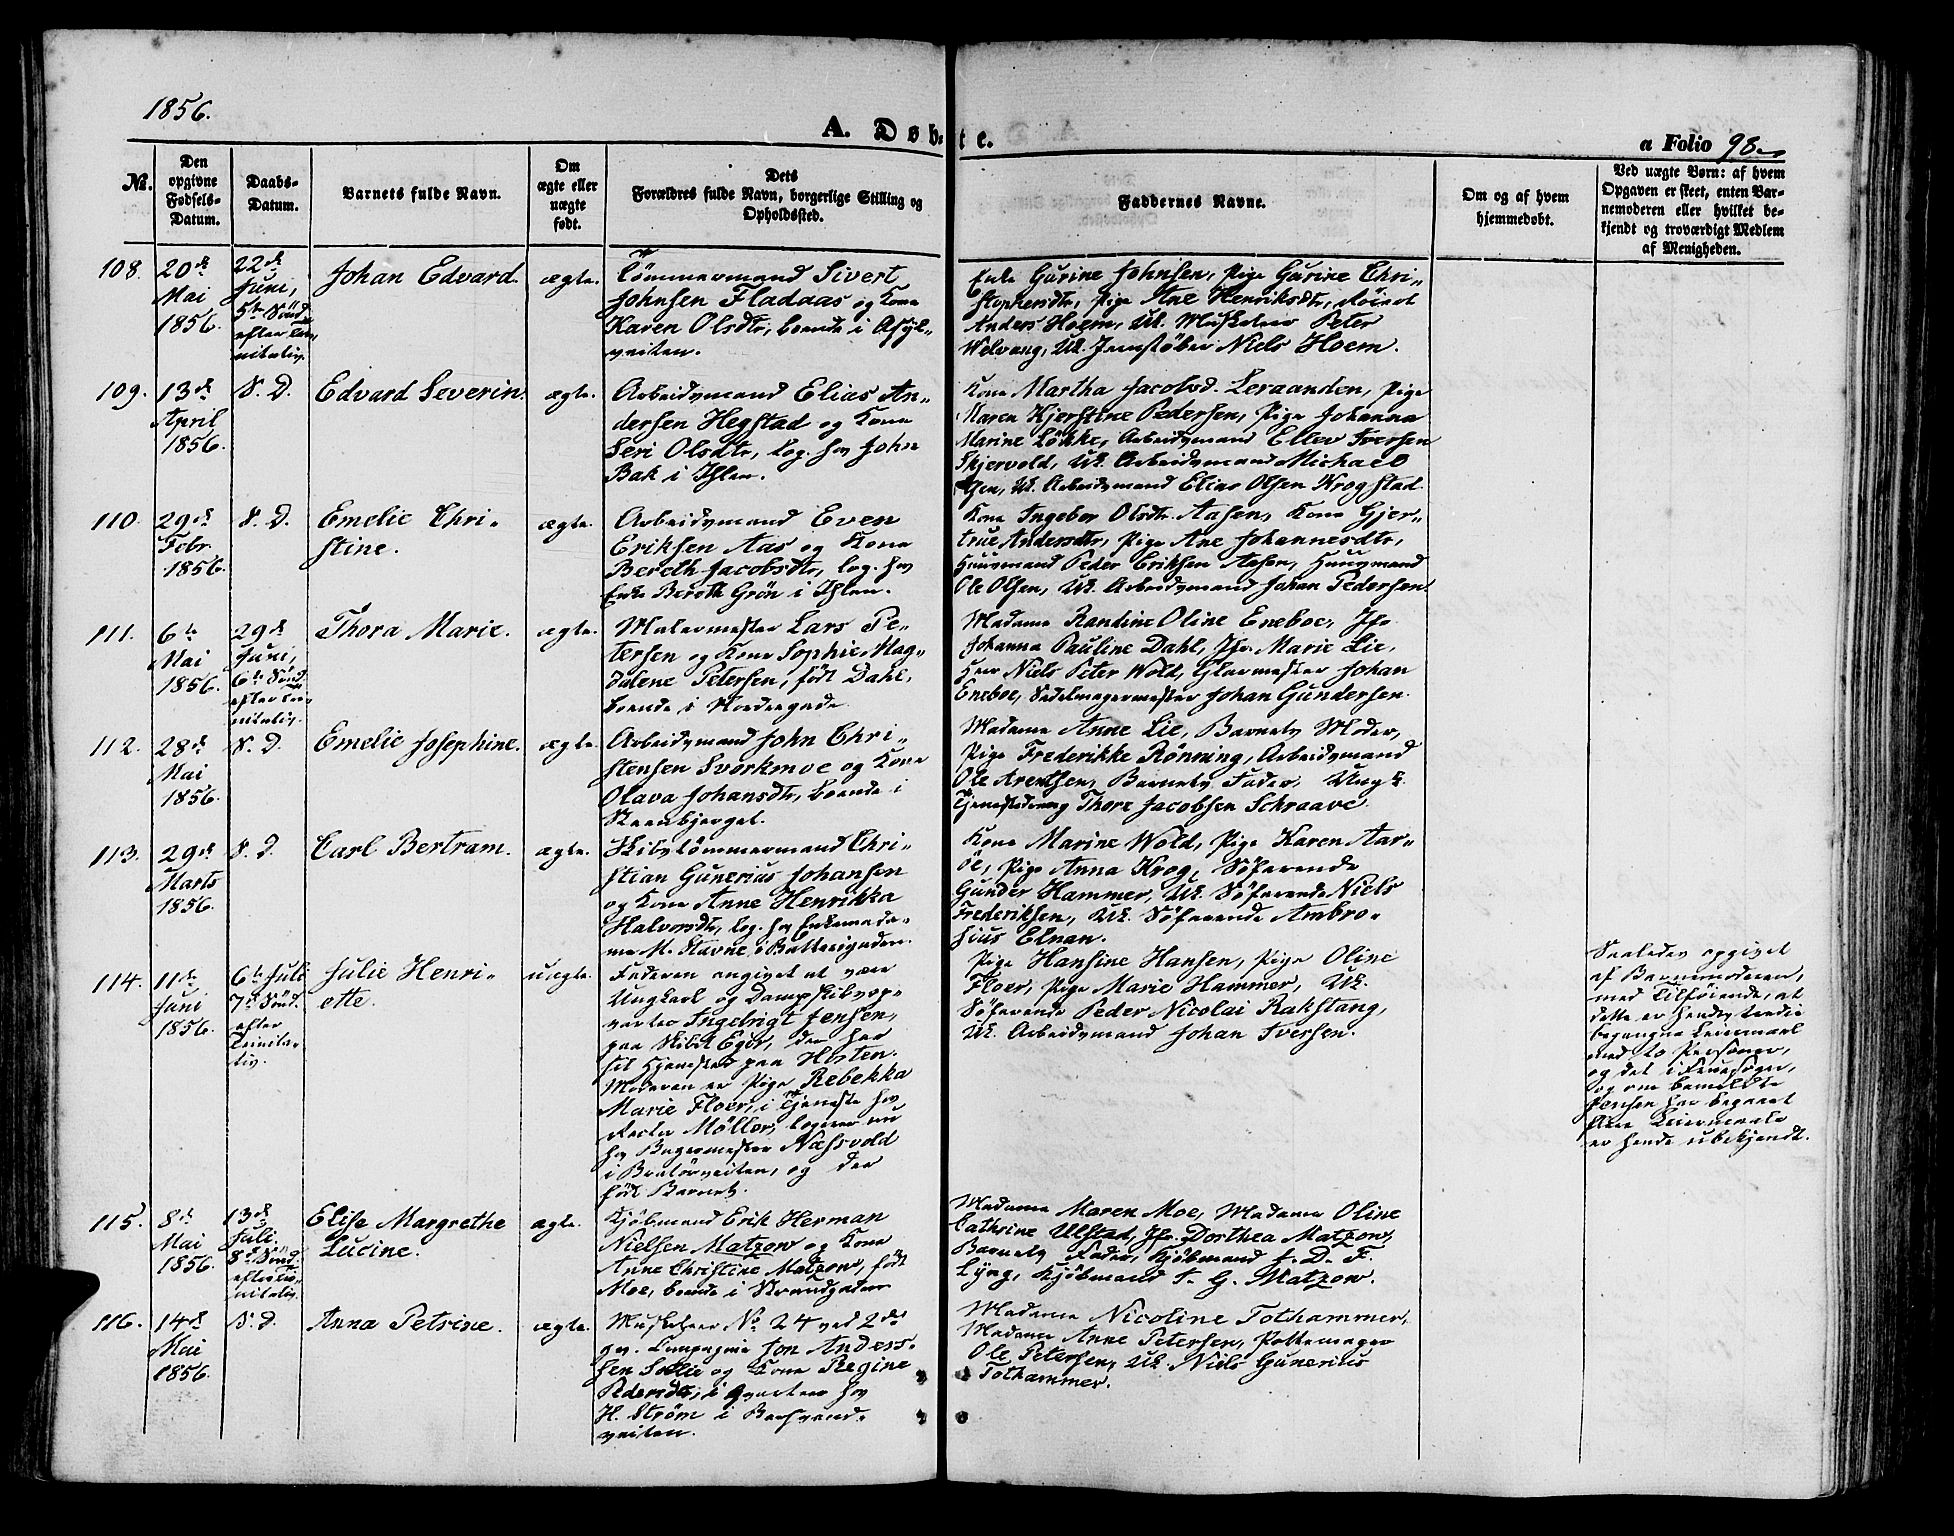 1856.
A. Døbte.
a Folio 98.
No.
Den opgivne Fødsels-Datum.
Daabs-Datum.
Barnets fulde Navn.
Om ægte eller uægte født.
Dets Forældres fulde Navn, borgerlige Stilling og Opholdsted.
Faddernes Navne.
Om og af hvem hjemmedøbt.
Ved uægte Børn: af hvem Opgaven er skeet, enten Barnemoderen eller hvilket bekjendt og troværdigt Medlem af Menigheden.
108. 20de Mai 1856.
22de Juni, 5te Sönd. efter Trinitatis.
Johan Edvard.
ægte.
Tömmermand Sivert
Johnsen Fladaas og Kone
Karen Olsdtr, boende i Asyl-
veiten.
Enke Gurine Johnsen, Pige Gurine Chri-
stophersdtr, Pige Ane Henriksdtr,
Anders Hoem, Uk. Musketeer Peter
Welvang, Uk. Jernstöber Niels Hoem.
109. 13de April 1856.
S. D.
Edvard Severin.
ægte.
Arbeidsmand Elias An-
dersen Hegstad og Kone
Seri Olsdtr, log. hos John
Bak i Ihlen.
Kone Martha Jacobsd. Leraanden, Pige
Maren Kjerstine Pedersen, Pige Johanna
Marine Lökke, Arbeidsmand Ellev Iversen
Skjervold, Uk. Arbeidsmand Michael
Uk. Arbeidsmand Elias Olsen Krogstad
110. 29de Febr. 1856.
S. D.
Emelie Chri-
stine.
ægte.
Arbeidsmand Even
Eriksen Aas og Kone
Bereth Jacobsdtr, log. hos
Enke Bereth Grön i Ihlen.
Kone Ingebor Olsdtr Aasen, Kone Gjer-
true Andersdtr, Pige Ane Johannesdtr,
Huusmand Peder Eriksen Aasen, Huusmand
Ole Olsen, Uk. Arbeidsmand Johan Pedersen.
111. 6te Mai 1856.
29de Juni, 6te Sönd. efter Trinitatis.
Thora Marie.
ægte.
Malermester Lars Pe-
tersen og Kone Sophie Mag-
dalene Petersen, födt Dahl,
boende i Nordregade.
Madame Randine Oline Eneboe, Jfr.
Johanna Pauline Dahl, Jfr. Marie Lie,
Herr Niels Peter Wold, Glarmester Johan
Eneboe, Sadelmagermester Johan Gundersen.
112. 28de Mai 1856.
S. D.
Emelie Josephine.
ægte.
Arbeidsmand John Chri-
stensen Svorkmoe og Kone
Olava Johansdtr, boende i
Steenbjerget.
Madame Anne Lie, Barnets Moder,
Pige Frederikke Rönning, Arbeidsmand
Ole Arentsen, Barnets Fader, Ungk.
Tjenestedreng Thore Jacobsen Schraave.
113. 29de Marts 1856.
S. D.
Carl Bertram.
ægte.
Skibstömmermand Chri-
stian Gunerius Johansen
og Kone Anne Henrikka
Halvorsdtr, log. hos Enkemada-
me M. Stavne i Batterigaden.
Kone Marine Wold, Pige Karen Aar-
öe, Pige Anna Krog, Söfarende
Gunder Hammer, Uk. Söfarende Niels
Frederiksen, Uk. Söfarende Ambro-
sius Elnan.
114. 11te Juni 1856.
6te Juli 7de Sönd. efter Trinitatis.
Julie Henri-
ette.
uægte.
Faderen angivet at være
Ungkarl og Dampskibsop-
varter Ingebrigt Jensen,
paa Skibet Eger, der har
sit Hjemsted paa Horten.
Moderen er Pige Rebekka
Marie Floer, i Tjeneste hos
Rector Möller, logerer nu
hos Bagermester Næssvold
i Bratörveiten, og der
födt Barnet.
Pige Hansine Hansen, Pige Oline
Floer, Pige Marie Hammer, Uk.
Söfarende Peder Nicolai Rakstang,
Uk. Arbeidsmand Johan Iversen.
Saaledes opgivet
af Barnemoderen,
med Tilföiende, at
dette er hendes tredie
begangne Leiermaal
med to Personer,
og det i
og om bemeldte
Jensen har begaaet
flere Leiermaale
er hende ubekjendt.
115. 8de Mai 1856.
13de Juli. 8de Sönd. efter Trinitatis.
Elise Margrethe
Lucine.
ægte.
Kjöbmand Erik Herman
Nielsen Matzow og Kone
Anne Christine Matzow, födt
Moe, boende i Strandgaden
Madame Maren Moe, Madame Oline
Cathrine Ulstad, Jfr. Dorthea Matzow,
Barnets Fader, Kjöbmand J. D. F.
Lyng, Kjöbmand T. G. Matzow.
116. 14de Mai 1856.
S. D.
Anna Petrine.
ægte.
Musketeer No 24 ved 2det
gev. Compagnie Jon Anders-
sen Sollie og Kone Regine
Pedersdtr, i Qvarteer hos
H. Ström i Bersvend-
veiten.
Madame Nicoline Tothammer,
Madame Anne Petersen, Pottemager
Ole Petersen, Uk. Niels Gunerius
Tothammer.